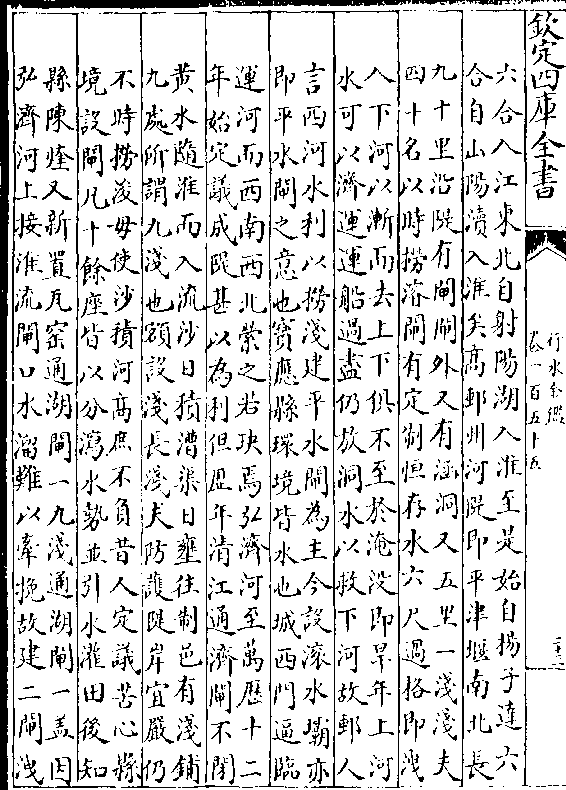 欽定四庫全書
行水金鑑
卷一百五十五
六合入江東北自射陽湖入淮至是始自揚子達六
合自山陽瀆入淮矣高郵州河隄即平津堰南北長
九十里沿隄有閘閘外又有涵洞又五里一淺淺夫
四十名以時撈濬閘有定制恒存水六尺過格即洩
入下河以漸而去上下俱不至於淹没即旱年上河
水可以濟運運船過盡仍放洞水以救下河故郵人
言西河水利以撈淺建平水閘為主今設滚水壩亦
即平水閘之意也寳應縣環境皆水也城西門逼臨
運河而西南西北縈之若玦焉弘濟河至萬厯十二
年始定議成隄甚以為利但歴年清江通濟閘不閉
黄水隨淮而入流沙日積漕渠日壅往制邑有淺鋪
九處所謂九淺也額設淺長淺夫防護隄岸宜嚴仍
不時撈浚毋使沙積河高庶不負昔人定議苦心縣
境設閘凡十餘座皆以分瀉水勢並引水灌田後知
縣陳煃又新置瓦窑通湖閘一九淺通湖閘一盖因
弘濟河上接淮流閘口水溜難以牽挽故建二閘洩